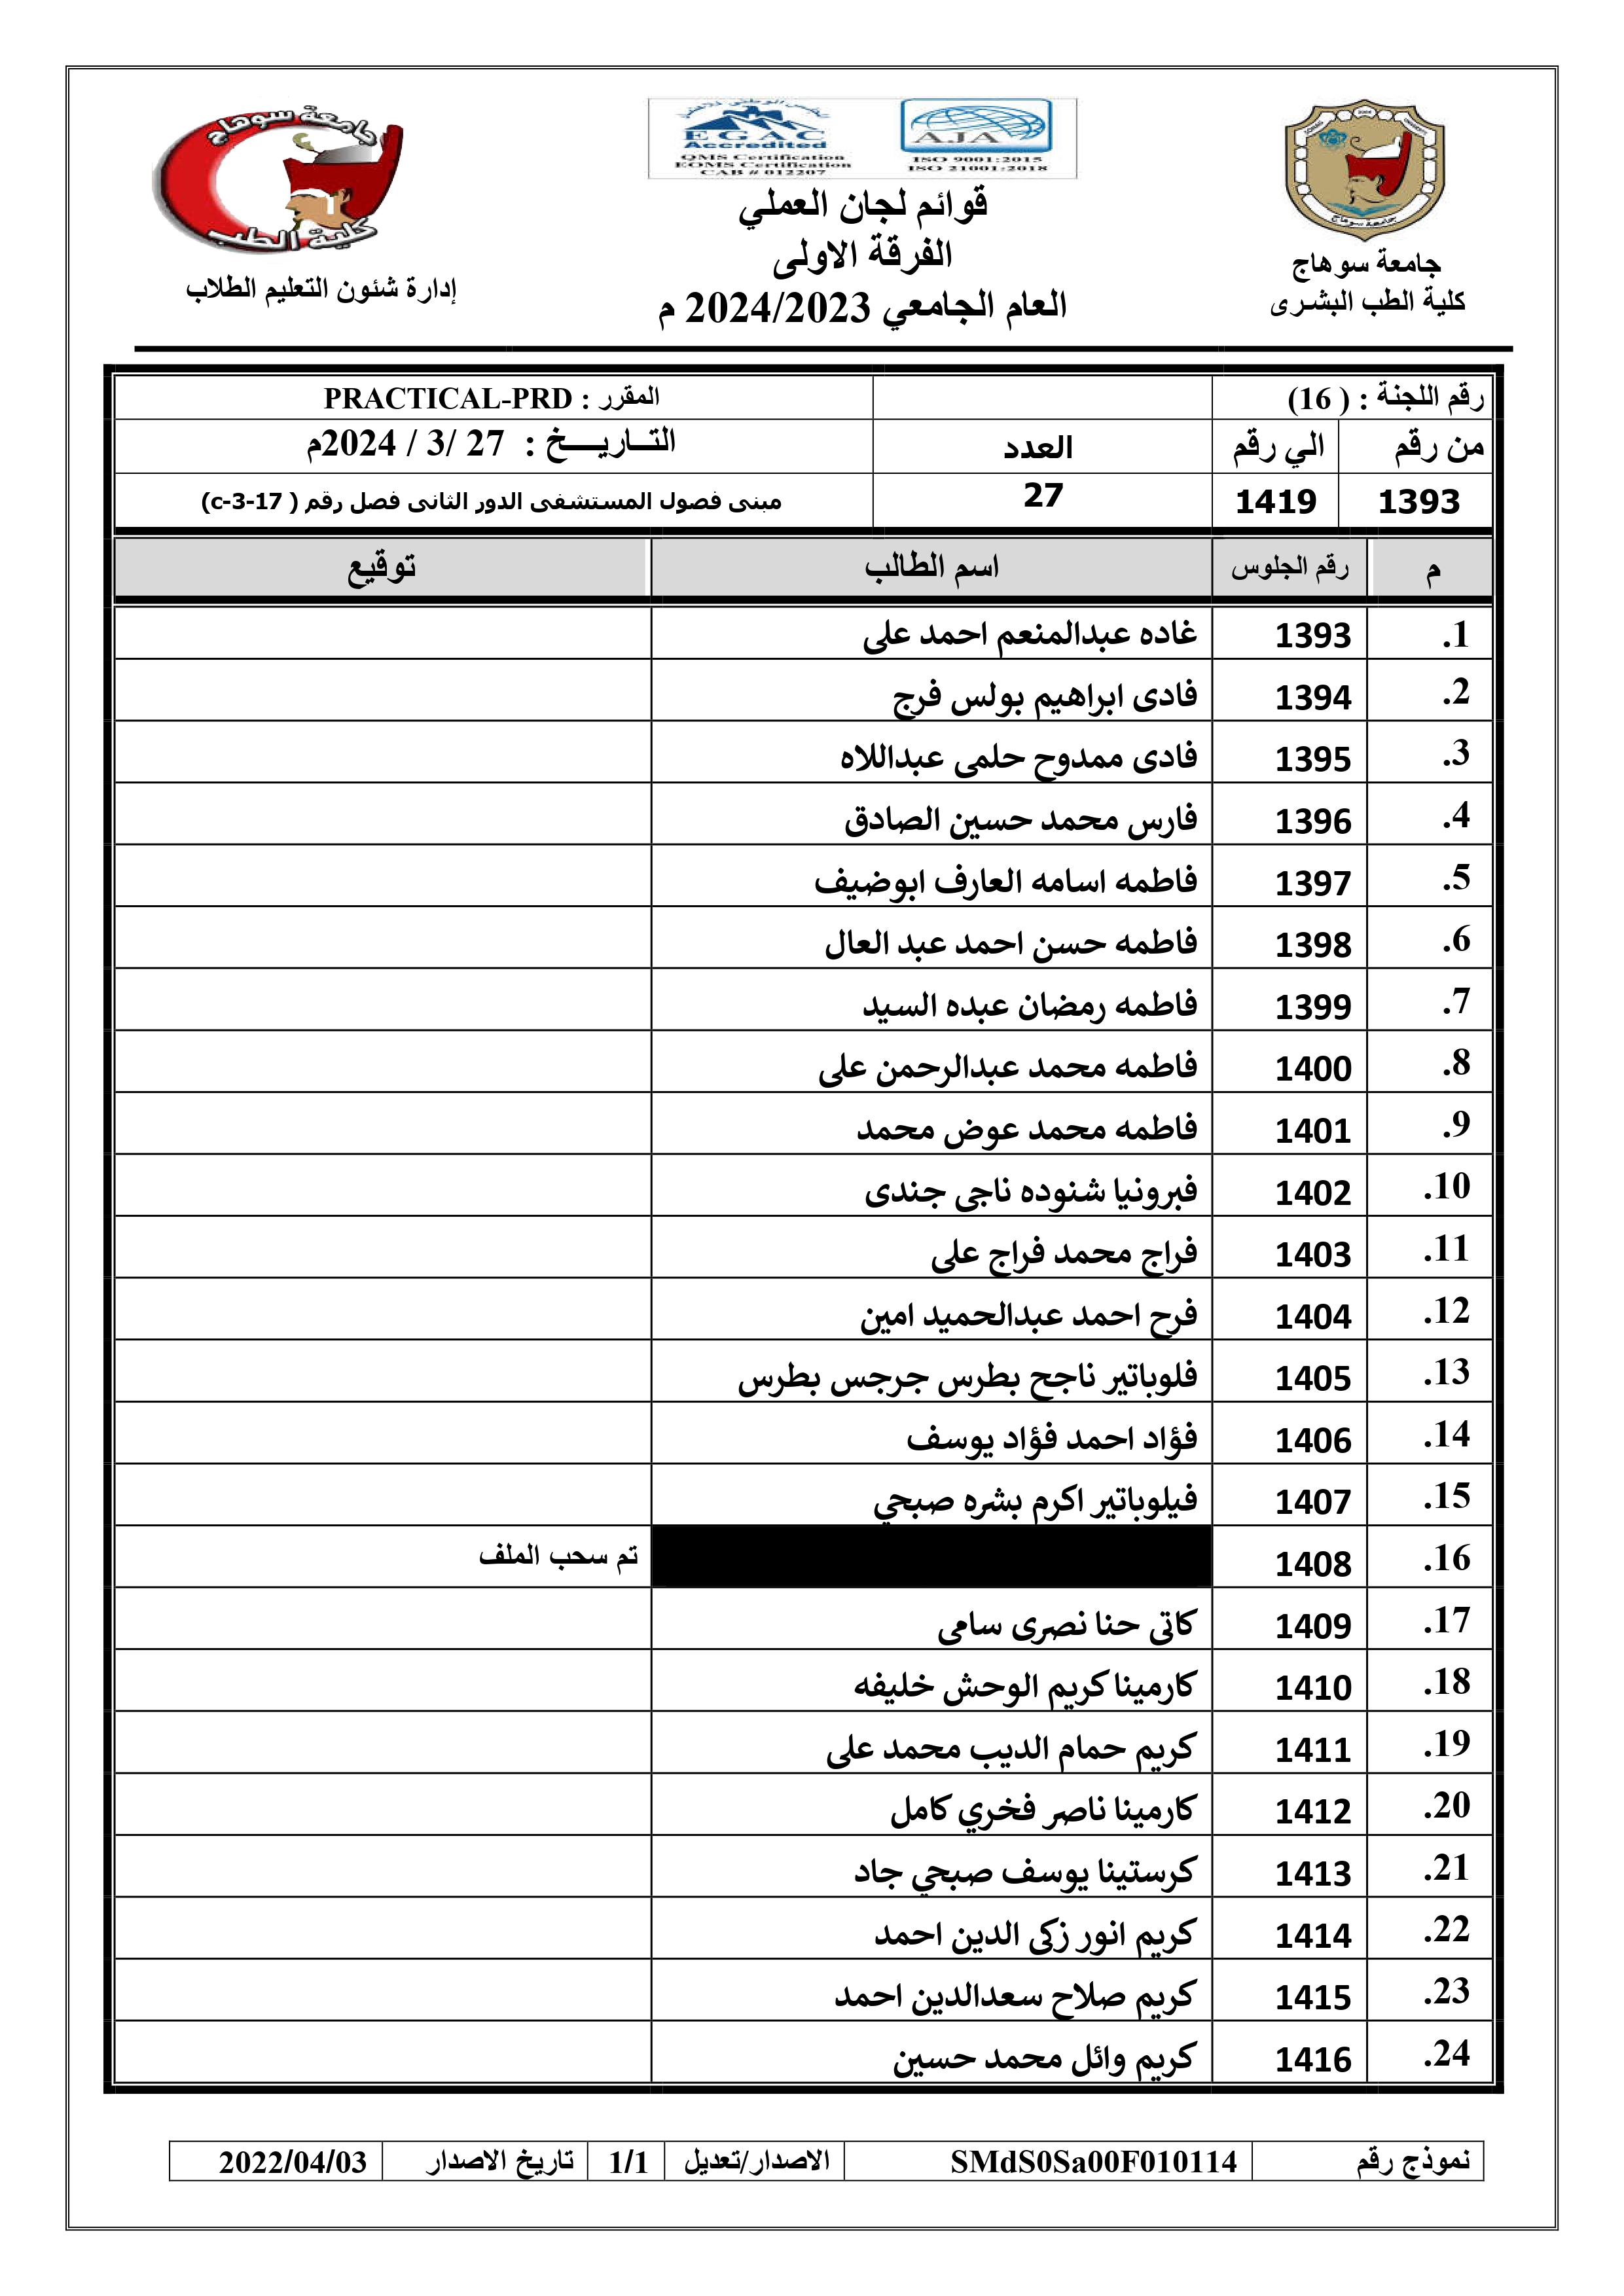 جامعة سوهاج
كلية الطب البشرى
EGAC
Accredited
QMS Certification
EOMS Certification
CAB # 012207
AJA
ISO 9001:2015
ISO 21001:2018
قوائم لجان العملي
الفرقة الاولى
العام الجامعي 2024/2023 م
جامعة سوهاج
كلية الطب
إدارة شئون التعليم الطلاب
رقم اللجنة : ( 16) المقرر : PRACTICAL-PRD
من رقم الي رقم العدد التــاريــــخ : 27 /3 / 2024م
1393 1419 27 مبنى فصول المستشفى الدور الثانى فصل رقم ( c-3-17)
م رقم الجلوس اسم الطالب توقيع
1. 1393 غاده عبدالمنعم احمد على
2. 1394 فادى ابراهيم بولس فرج
3. 1395 فادى ممدوح حلمى عبداللاه
4. 1396 فارس محمد حسين الصادق
5. 1397 فاطمه اسامه العارف ابوضيف
6. 1398 فاطمه حسن احمد عبد العال
7. 1399 فاطمه رمضان عبده السيد
8. 1400 فاطمه محمد عبدالرحمن على
9. 1401 فاطمه محمد عوض محمد
10. 1402 فبرونيا شنوده ناجى جندى
11. 1403 فراج محمد فراج على
12. 1404 فرح احمد عبدالحميد امين
13. 1405 فلوباتير ناجح بطرس جرجس بطرس
14. 1406 فؤاد احمد فؤاد يوسف
15. 1407 فيلوباتير اكرم بشره صبحي
16. 1408 تم سحب الملف
17. 1409 كاتى حنا نصرى سامى
18. 1410 كارمينا كريم الوحش خليفه
19. 1411 كريم حمام الديب محمد على
20. 1412 كارمينا ناصر فخري كامل
21. 1413 كرستينا يوسف صبحي جاد
22. 1414 كريم انور زكى الدين احمد
23. 1415 كريم صلاح سعدالدين احمد
24. 1416 كريم وائل محمد حسين
نموذج رقم SMdS0Sa00F010114 الاصدار/تعديل 1/1 تاريخ الاصدار 2022/04/03